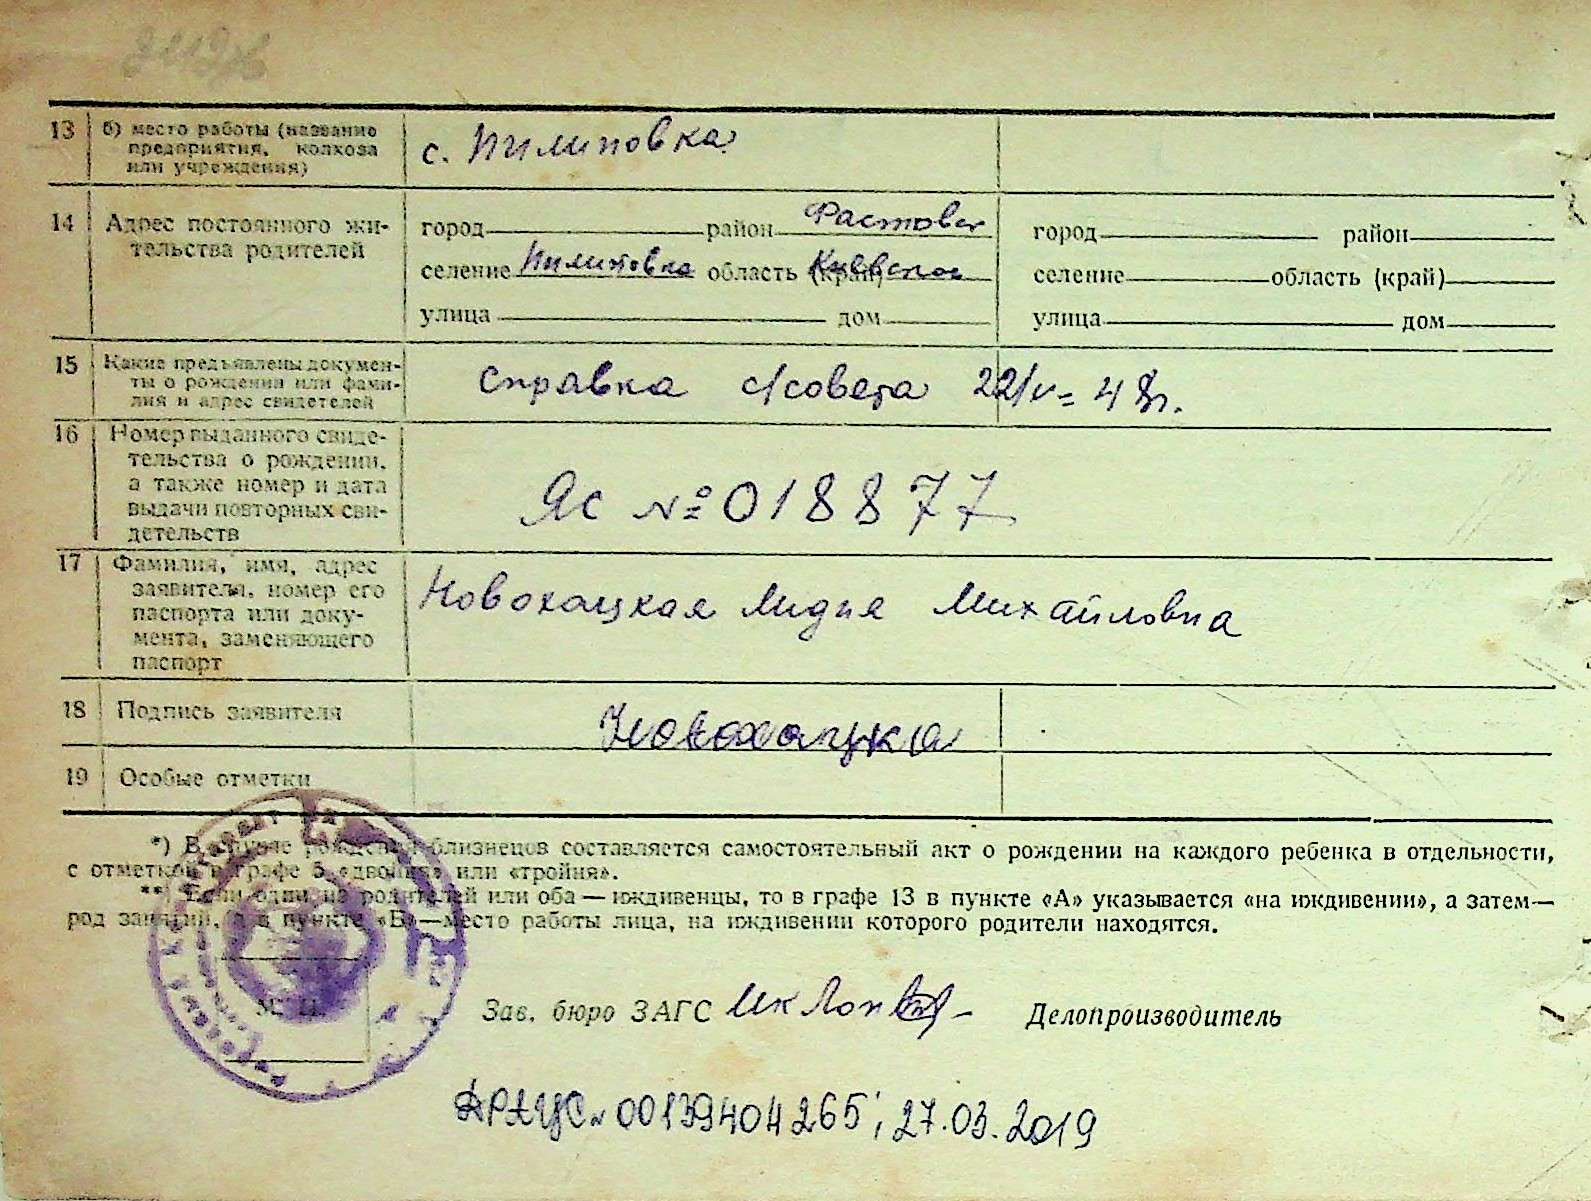 13 б) место работы (название
предприятия, колхоза
или учреждения)
с. Пилиповка
14 Адрес постоянного жи-
тельства родителей
город район Фастовск
селение Пилиповка область (край) Киевская
улица дом
город район
селение область (край)
улица дом
15 Какие предъявлены докумен-
ты о рождении или фами-
лия и адрес свидетелей
справка с/совета 22/V - 48 г.
16 Номер выданного свиде-
тельства о рождении,
а также номер и дата
выдачи повторных сви-
детельств
Яс № 018877
17 Фамилия, имя, адрес
заявителя, номер его
паспорта или доку-
мента, заменяющего
паспорт
Новохацкая Лидия Михайловна
18 Подпись заявителя
Новохацка
19 Особые отметки
*) В случае рождения близнецов составляется самостоятельный акт о рождении на каждого ребенка в отдельности,
с отметкой в графе 5 «двойня» или «тройня».
**) Если один из родителей или оба — иждивенцы, то в графе 13 в пункте «А» указывается «на иждивении», а затем—
род занятий, а в пункте «Б»—место работы лица, на иждивении которого родители находятся.
М. П.
Зав. бюро ЗАГС Делопроизводитель
ДРАЦС № 00139404265; 27.03.2019